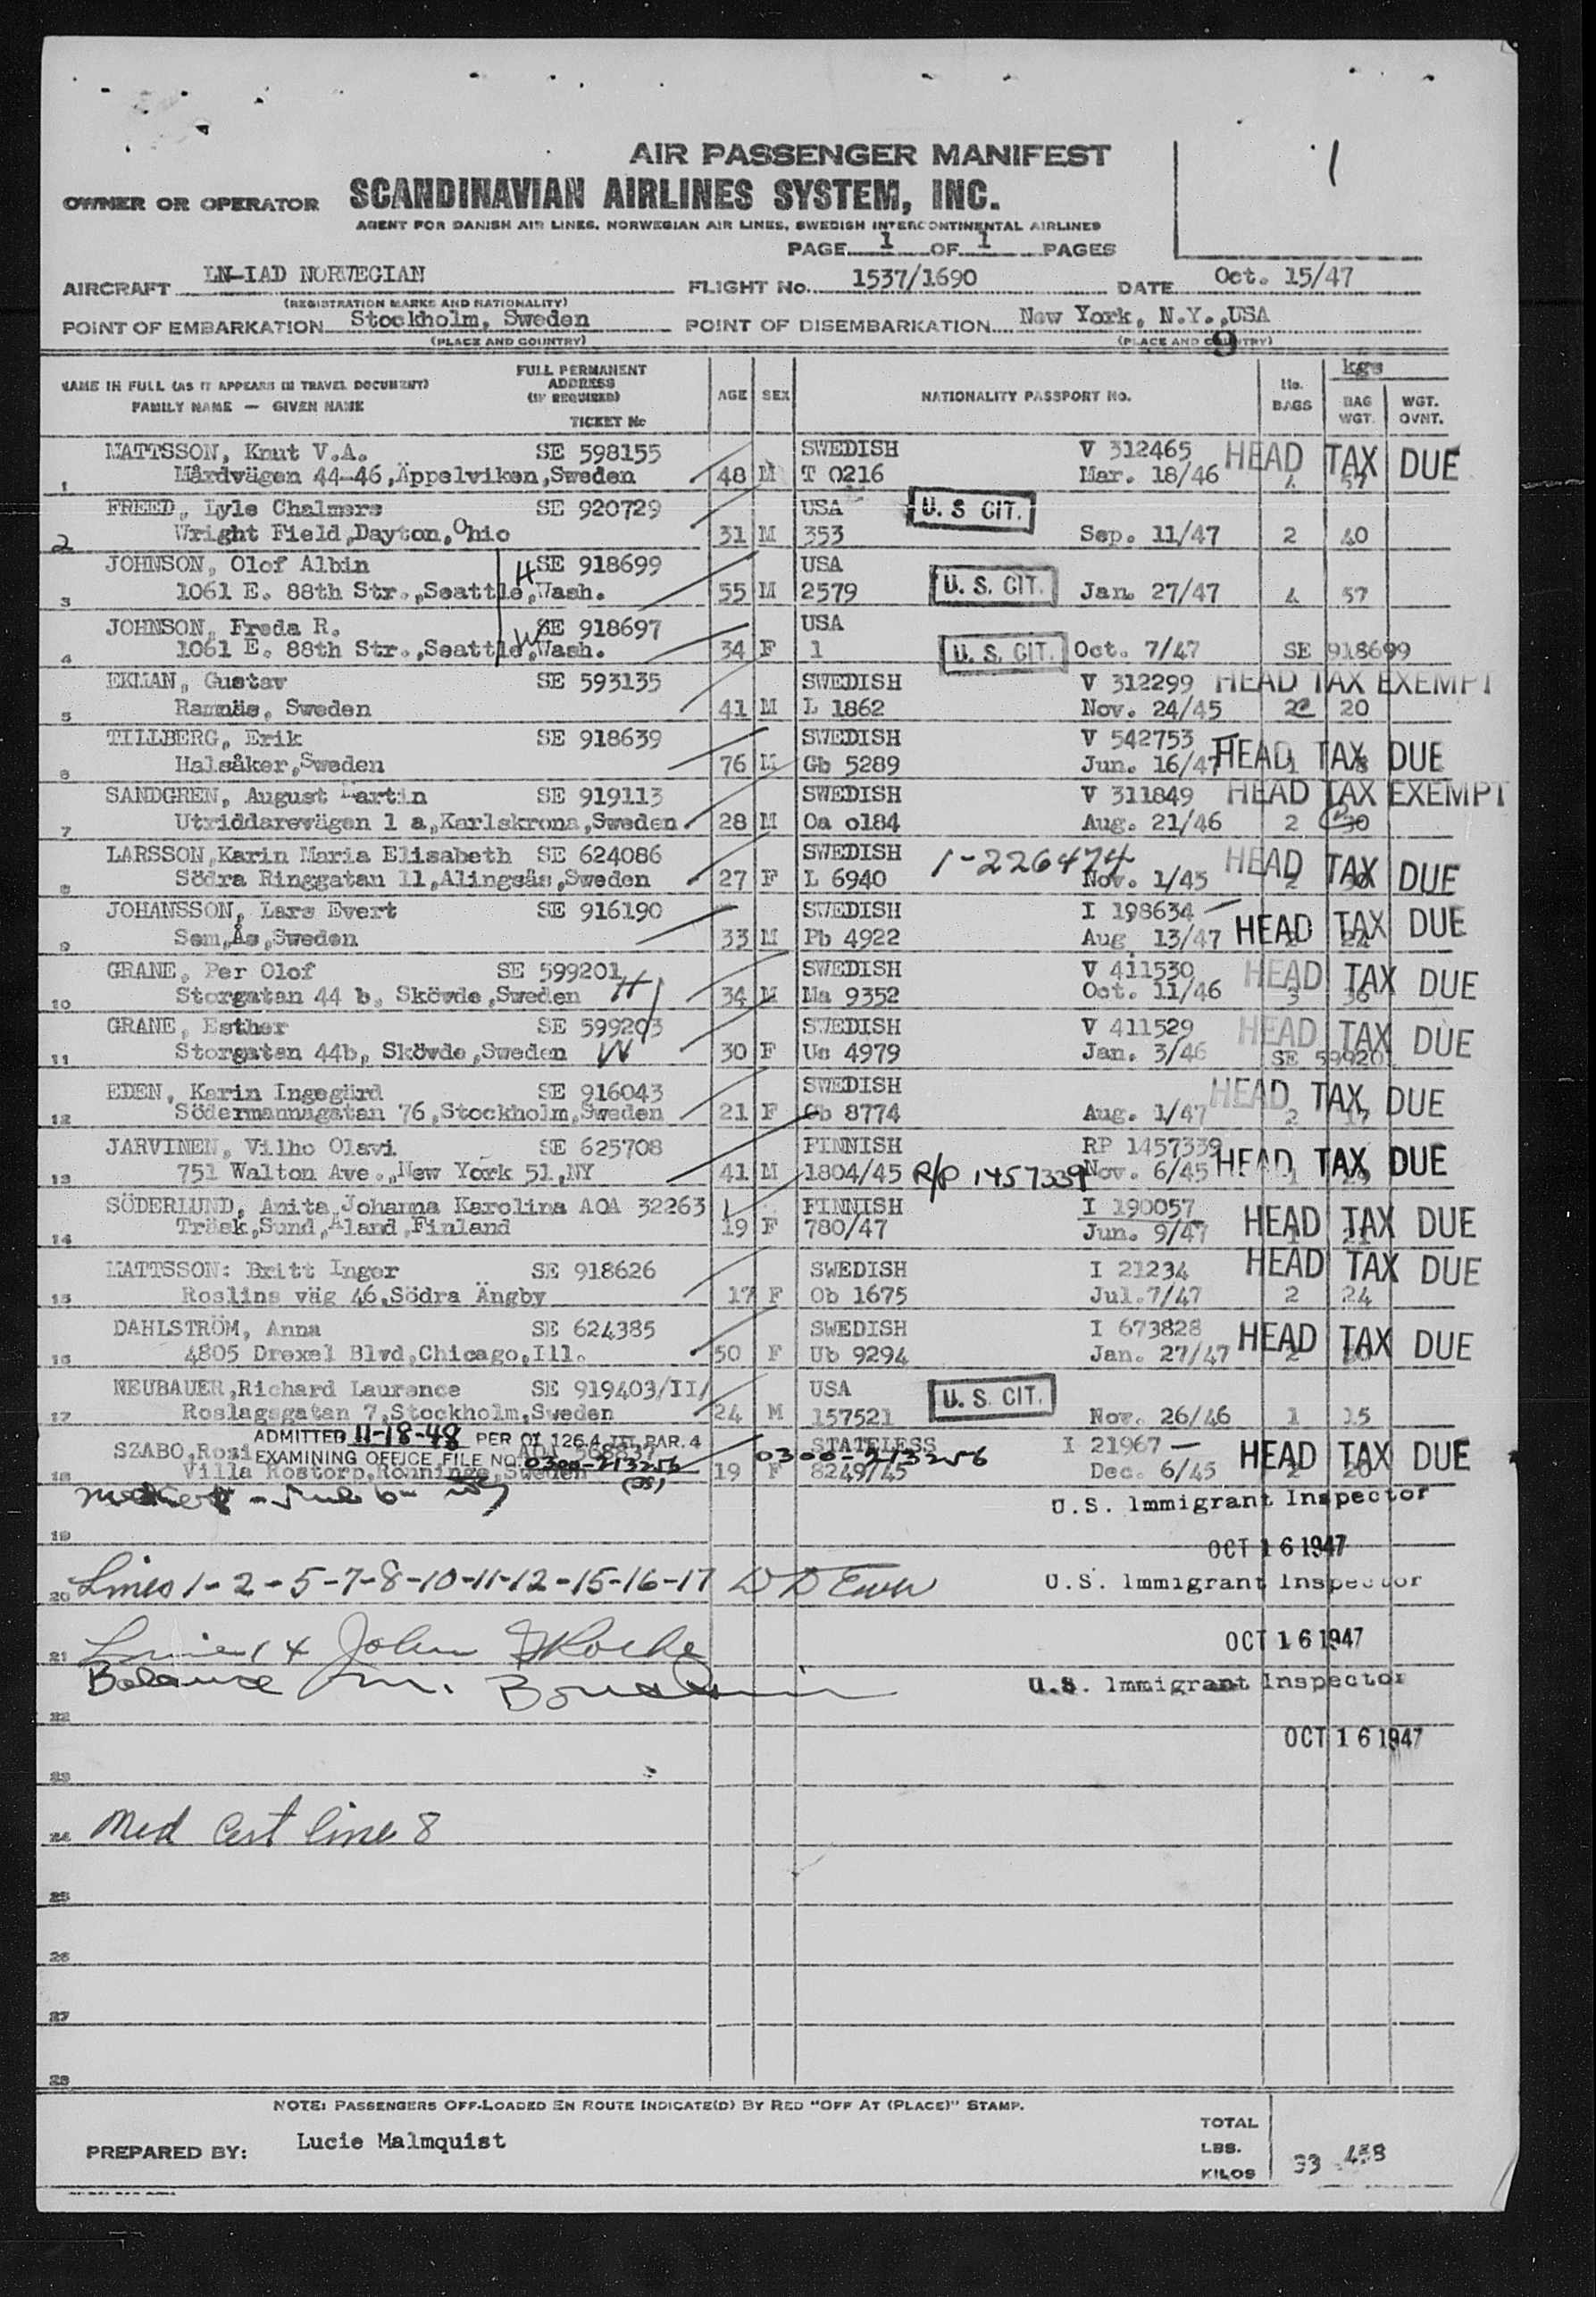 1
AIR PASSENGER MANIFEST
OWNER OR OPERATOR SCANDINAVIAN AIRLINES SYSTEM, INC.
AGENT FOR DANISH AIR LINES, NORWEGIAN AIR LINES, SWEDISH INTERCONTINENTAL AIRLINES
PAGE 1 OF 1 PAGES
AIRCRAFT LN-IAD NORWEGIAN FLIGHT No. 1537/1690 DATE Oct. 15/47
(REGISTRATION MARKS AND NATIONALITY)
POINT OF EMBARKATION Stockholm, Sweden POINT OF DISEMBARKATION New York, N.Y.,USA
(PLACE AND COUNTRY) (PLACE AND COUNTRY) 9
NAME IN FULL (AS IT APPEARS IN TRAVEL DOCUMENT) FAMILY NAME — GIVEN NAME FULL PERMANENT ADDRESS (IF REQUIRED) TICKET No AGE SEX NATIONALITY PASSPORT No. No. BAGS kgs BAG WGT. WGT. OVNT.
MATTSSON, Knut V.A. SE 598155 SWEDISH V 312465 HEAD TAX DUE
1 Mårdvägen 44-46,Äppelviken,Sweden 48 M T 0216 Mar. 18/46 4 57
FREED, Lyle Chalmers SE 920729 USA U. S CIT.
2 Wright Field,Dayton,Ohio 31 M 353 Sep. 11/47 2 40
JOHNSON, Olof Albin H SE 918699 USA U. S. CIT.
3 1061 E. 88th Str.,Seattle,Wash. 55 M 2579 Jan. 27/47 4 57
JOHNSON, Freda R. W SE 918697 USA U. S. CIT.
4 1061 E. 88th Str.,Seattle,Wash. 34 F 1 Oct. 7/47 SE 918699
EKMAN, Gustav SE 593135 SWEDISH V 312299 HEAD TAX EXEMPT
5 Ramnäs, Sweden 41 M L 1862 Nov. 24/45 2 20
TILLBERG, Erik SE 918639 SWEDISH V 542753 HEAD TAX DUE
6 Halsåker,Sweden 76 M Gb 5289 Jun. 16/47 1
SANDGREN, August Martin SE 919113 SWEDISH V 311849 HEAD TAX EXEMPT
7 Utriddarevägen 1 a,Karlskrona,Sweden 28 M Oa o184 Aug. 21/46 2 30
LARSSON,Karin Maria Elisabeth SE 624086 SWEDISH 1-226474 HEAD TAX DUE
8 Södra Ringgatan 11,Alingsås,Sweden 27 F L 6940 Nov. 1/45 2 30
JOHANSSON, Lars Evert SE 916190 SWEDISH I 198634 HEAD TAX DUE
9 Sem,Ås,Sweden 33 M Pb 4922 Aug 13/47 2 24
GRANE, Per Olof SE 599201 H SWEDISH V 411530 HEAD TAX DUE
10 Storgatan 44 b, Skövde,Sweden 34 M Ma 9352 Oct. 11/46 3 36
GRANE, Esther SE 599203 SWEDISH V 411529 HEAD TAX DUE
11 Storgatan 44b, Skövde,Sweden W 30 F Uc 4979 Jan. 3/46 SE 59920
EDEN, Karin Ingegärd SE 916043 SWEDISH HEAD TAX DUE
12 Södermannagatan 76,Stockholm,Sweden 21 F Gb 8774 Aug. 1/47 2 17
JARVINEN, Vilho Olavi SE 625708 FINNISH RP 1457339 HEAD TAX DUE
13 751 Walton Ave.,New York 51,NY 41 M 1804/45 R/P 1457339 Nov. 6/45 1
SÖDERLUND, Anita Johanna Karolina AOA 32263 FINNISH I 190057 HEAD TAX DUE
14 Träsk,Sund,Åland,Finland 19 F 780/47 Jun. 9/47 1 21
MATTSSON: Britt Inger SE 918626 SWEDISH I 21234 HEAD TAX DUE
15 Roslins väg 46,Södra Ängby 17 F Ob 1675 Jul.7/47 2 24
DAHLSTRÖM, Anna SE 624385 SWEDISH I 673828 HEAD TAX DUE
16 4805 Drexel Blvd,Chicago,Ill. 50 F Ub 9294 Jan. 27/47 2
NEUBAUER,Richard Laurence SE 919403/II/ USA U. S. CIT.
17 Roslagsgatan 7,Stockholm,Sweden 24 M 157521 Nov. 26/46 1 15
ADMITTED 11-18-48 PER OI 126.4 III PAR. 4
SZABO,Rozi AOA 568837 STATELESS I 21967 HEAD TAX DUE
EXAMINING OFFICE FILE NO. 0300-213256 0300-213256
18 Villa Rostorp,Rönninge,Sweden 19 F 8249/45 Dec. 6/45 2 20
U.S. Immigrant Inspector
19 OCT 16 1947
20 Lines 1-2-5-7-8-10-11-12-15-16-17 U.S. Immigrant Inspector
OCT 16 1947
21 Line 14 John
Balance U.S. Immigrant Inspector
22
OCT 16 1947
23
24 Med Cert line 8
25
26
27
28
NOTE: PASSENGERS OFF-LOADED EN ROUTE INDICATE(D) BY RED "OFF AT (PLACE)" STAMP.
PREPARED BY: Lucie Malmquist TOTAL LBS. KILOS 33